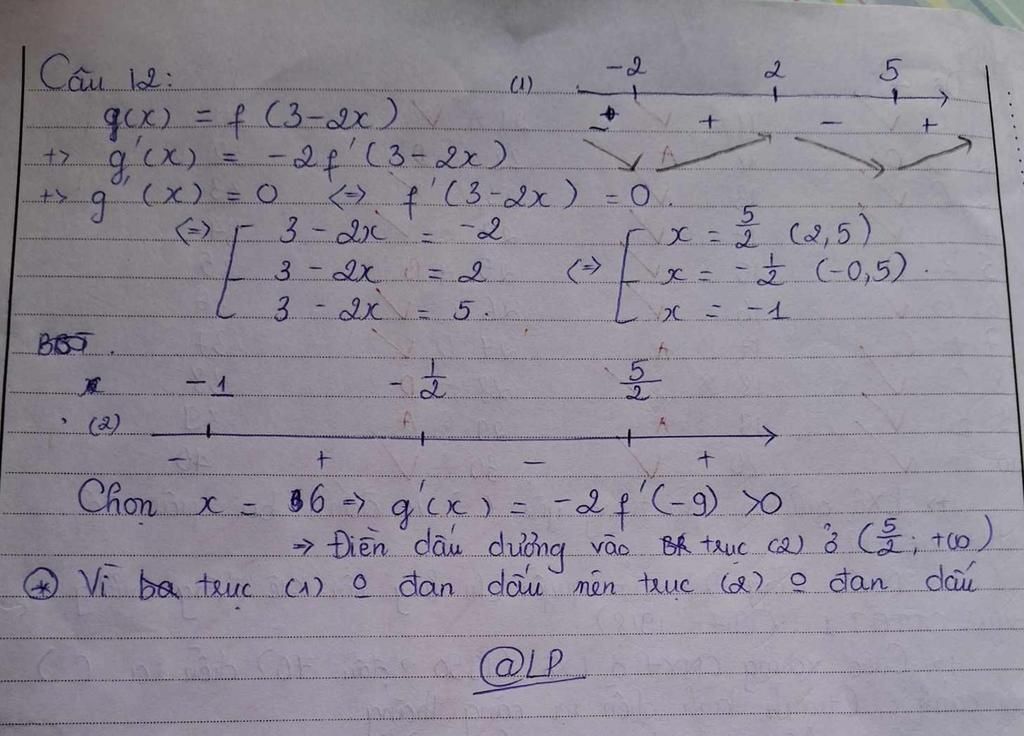 Câu 12:
(1) -2 2 5
- + - +
g(x) = f (3-2x)
+> g'(x) = -2f'(3-2x)
+> g'(x) = 0 <=> f'(3-2x) = 0.
<=> [ 3 - 2x = -2 <=> [ x = 5/2 (2,5)
3 - 2x = 2 x = -1/2 (-0,5).
3 - 2x = 5. x = -1
x -1 -1/2 5/2
(2)
- + - +
Chọn x = 6 => g'(x) = -2f'(-9) >0
=> Điền dấu dương vào trục (2) ở (5/2; +∞)
* Vì trục (1) đan dấu nên trục (2) đan dấu
@LP